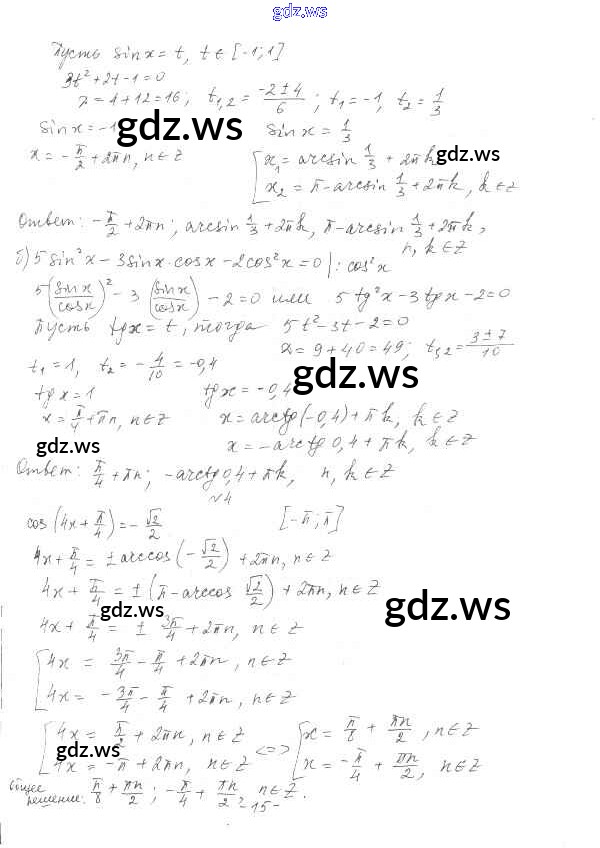 gdz.ws
Пусть sin x = t, t ∈ [-1;1]
3t² + 2t - 1 = 0
D = 4 + 12 = 16; t₁,₂ = (-2 ± 4)/6; t₁ = -1, t₂ = 1/3
sin x = -1 gdz.ws sin x = 1/3
x = -π/2 + 2πn, n ∈ Z [ x₁ = arcsin 1/3 + 2πk gdz.ws
x₂ = π - arcsin 1/3 + 2πk, k ∈ Z
Ответ: -π/2 + 2πn; arcsin 1/3 + 2πk, π - arcsin 1/3 + 2πk,
n, k ∈ Z
б) 5 sin²x - 3 sin x · cos x - 2 cos²x = 0 |: cos²x
5 (sin x/cos x)² - 3 (sin x/cos x) - 2 = 0 или 5 tg²x - 3 tg x - 2 = 0
Пусть tg x = t, тогда 5t² - 3t - 2 = 0
D = 9 + 40 = 49; t₁,₂ = (3 ± 7)/10
t₁ = 1, t₂ = -4/10 = -0,4
gdz.ws
tg x = 1 tg x = -0,4
x = π/4 + πn, n ∈ Z x = arctg(-0,4) + πk, k ∈ Z
gdz.ws x = -arctg 0,4 + πk, k ∈ Z
Ответ: π/4 + πn; -arctg 0,4 + πk, n, k ∈ Z
√4
cos (4x + π/4) = -√2/2 [-π; π]
4x + π/4 = ± arccos (-√2/2) + 2πn, n ∈ Z
4x + π/4 = ± (π - arccos √2/2) + 2πn, n ∈ Z
gdz.ws gdz.ws
4x + π/4 = ± 3π/4 + 2πn, n ∈ Z
[ 4x = 3π/4 - π/4 + 2πn, n ∈ Z
4x = -3π/4 - π/4 + 2πn, n ∈ Z
[ 4x = π/2 + 2πn, n ∈ Z <=> [ x = π/8 + πn/2, n ∈ Z
gdz.ws
4x = -π + 2πn, n ∈ Z x = -π/4 + πn/2, n ∈ Z
Общее решение: π/8 + πn/2; -π/4 + πn/2, n ∈ Z.
-15-